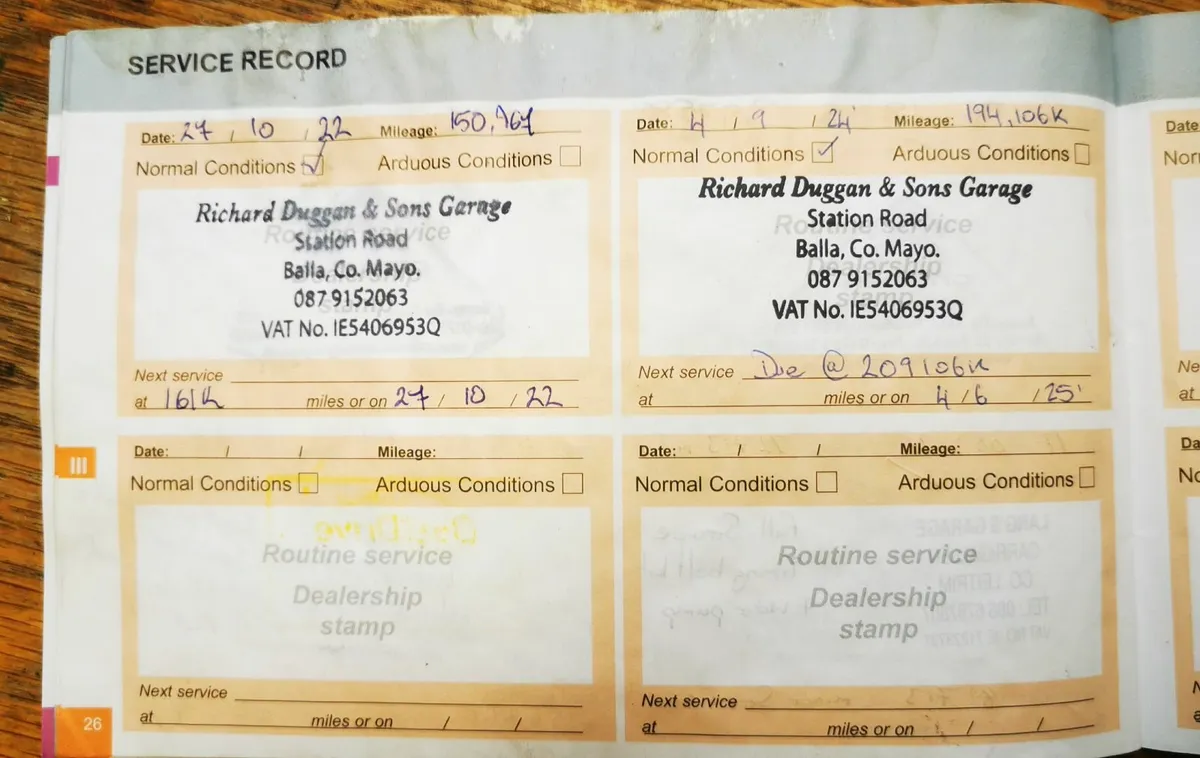 SERVICE RECORD
Date: 27 / 10 / 22 Mileage: 150,767
Normal Conditions ✓ Arduous Conditions
Richard Duggan & Sons Garage
Station Road
Balla, Co. Mayo.
087 9152063
VAT No. IE5406953Q
Routine service
Dealership
stamp
Next service
at 161K miles or on 27 / 10 / 22
Date: 4 / 9 / 24 Mileage: 194,106K
Normal Conditions ✓ Arduous Conditions
Richard Duggan & Sons Garage
Station Road
Balla, Co. Mayo.
087 9152063
VAT No. IE5406953Q
Routine service
Dealership
stamp
Next service Due @ 209106K
at miles or on 4 / 6 / 25
Date: / / Mileage:
Normal Conditions Arduous Conditions
Routine service
Dealership
stamp
Next service
at miles or on / /
Date: / / Mileage:
Normal Conditions Arduous Conditions
Routine service
Dealership
stamp
Next service
at miles or on / /
Date
Nor
Ne
at
Da
No
III
26